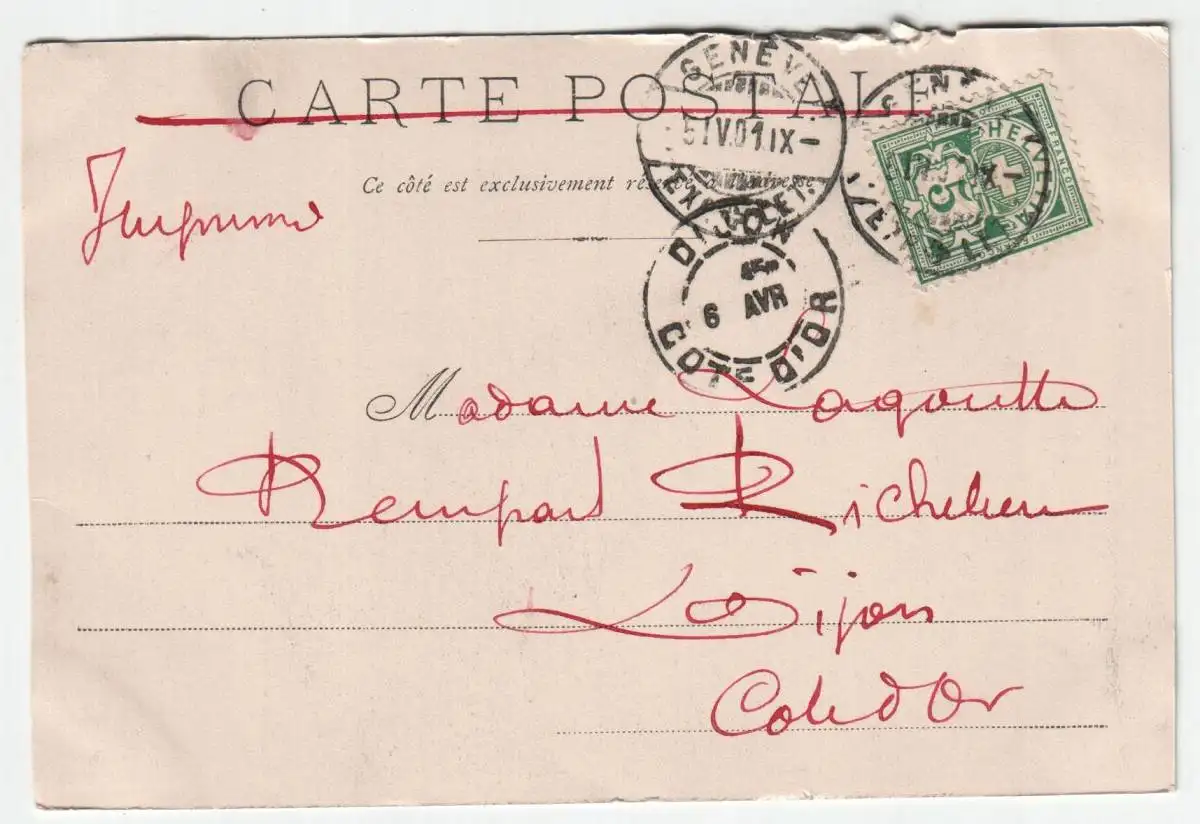 CARTE POSTALE
Ce côté est exclusivement réservé à l'adresse
Imprimé
GENÈVE
5 IV.01.IX–
EXP. LET.
GEN
IX–
HELVETIA
FRANCO
5
DIJON
6 AVR
COTE D'OR
Madame Lagoutte
Rempart Richelieu
Dijon
Côte d'Or